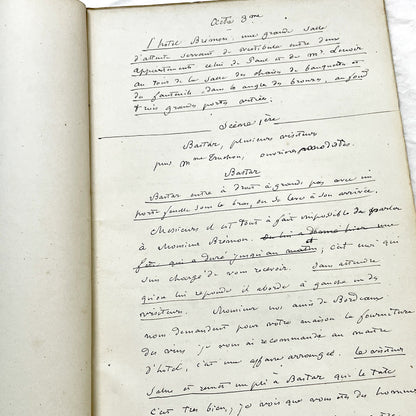 Acte 3me
L'hôtel Brémon. une grande salle
d'attente servant de vestibule entre deux
appartements celui de Paul et du Mr Lenoir
au tour de la salle des chaises de banquettes et
de fauteuils dans les angles des bronzes, au fond
trois grandes portes entrée.
Scène 1ère
Bastar, plusieurs visiteurs
puis Mme Truchon, ouvrières modistes.
Bastar
Bastar entre à droite à grands pas avec un
porte feuille sous le bras, on se lève à son arrivée.
Messieurs il est tout à fait impossible de parler
à Monsieur Brémon. On lui a donné hier une
fête qui a duré jusqu'au matin et, c'est moi qui
suis chargé de vous recevoir. Sans attendre
qu'on lui réponde il aborde à gauche un des
visiteurs. Monsieur nos amis de Bordeaux
nous demandent pour notre maison la fourniture
des vins, je vous ai recommandé au maître
d'hôtel, c'est une affaire arrangée. Le visiteur
salue et remet un pli à Bastar qui le tâte
c'est très bien, je vois que vous êtes des hommes